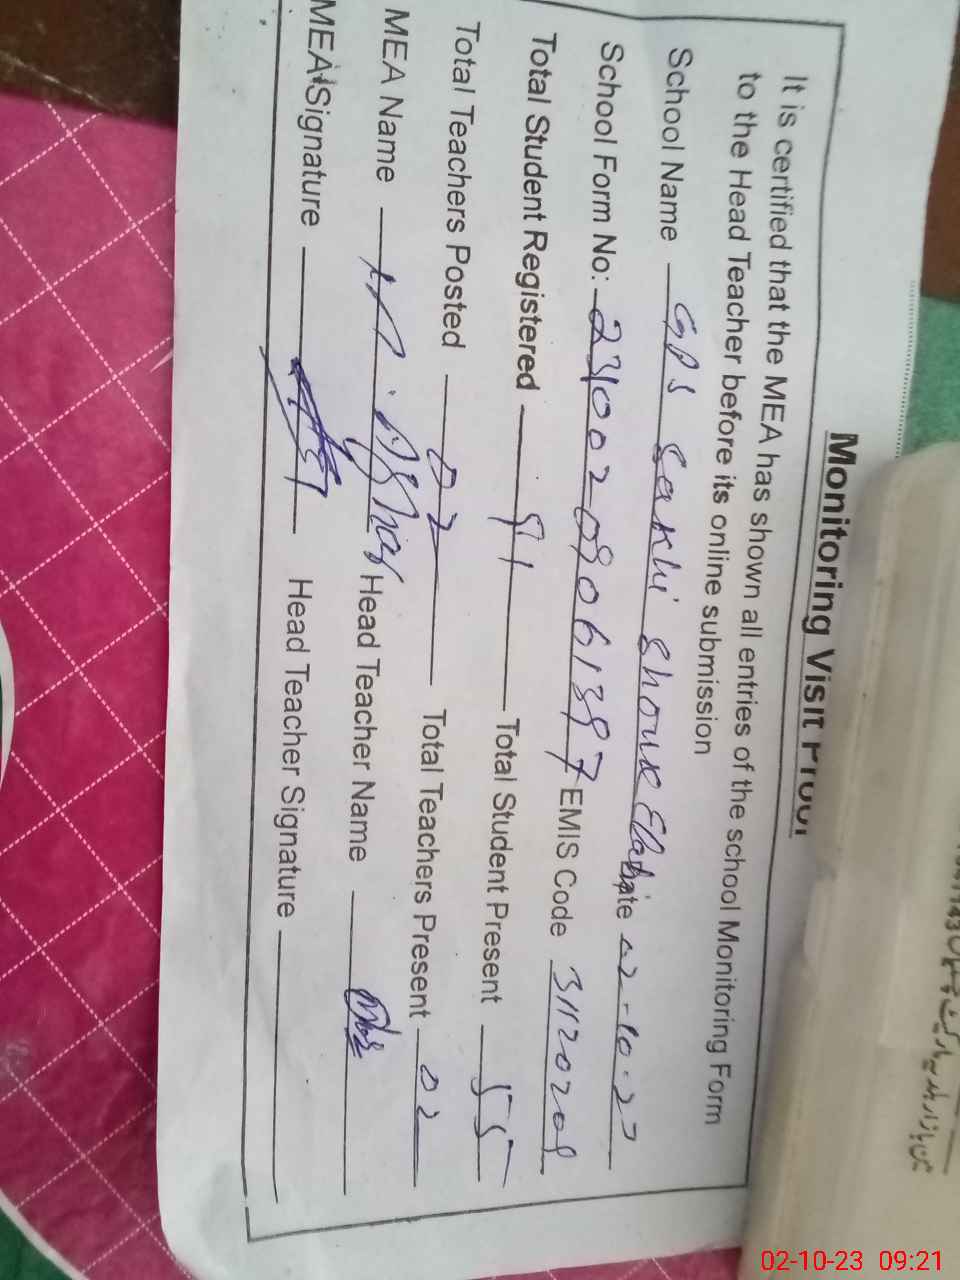 Monitoring Visit Proof
It is certified that the MEA has shown all entries of the school Monitoring Form
to the Head Teacher before its online submission
School Name GPS Sakhi Shouk Elahi Date 02-10-23
School Form No: 231002-089061387 EMIS Code 31120208
Total Student Registered 91 Total Student Present 55
Total Teachers Posted 02 Total Teachers Present 02
MEA Name M. Azhar Head Teacher Name
MEA Signature Head Teacher Signature
02-10-23 09:21